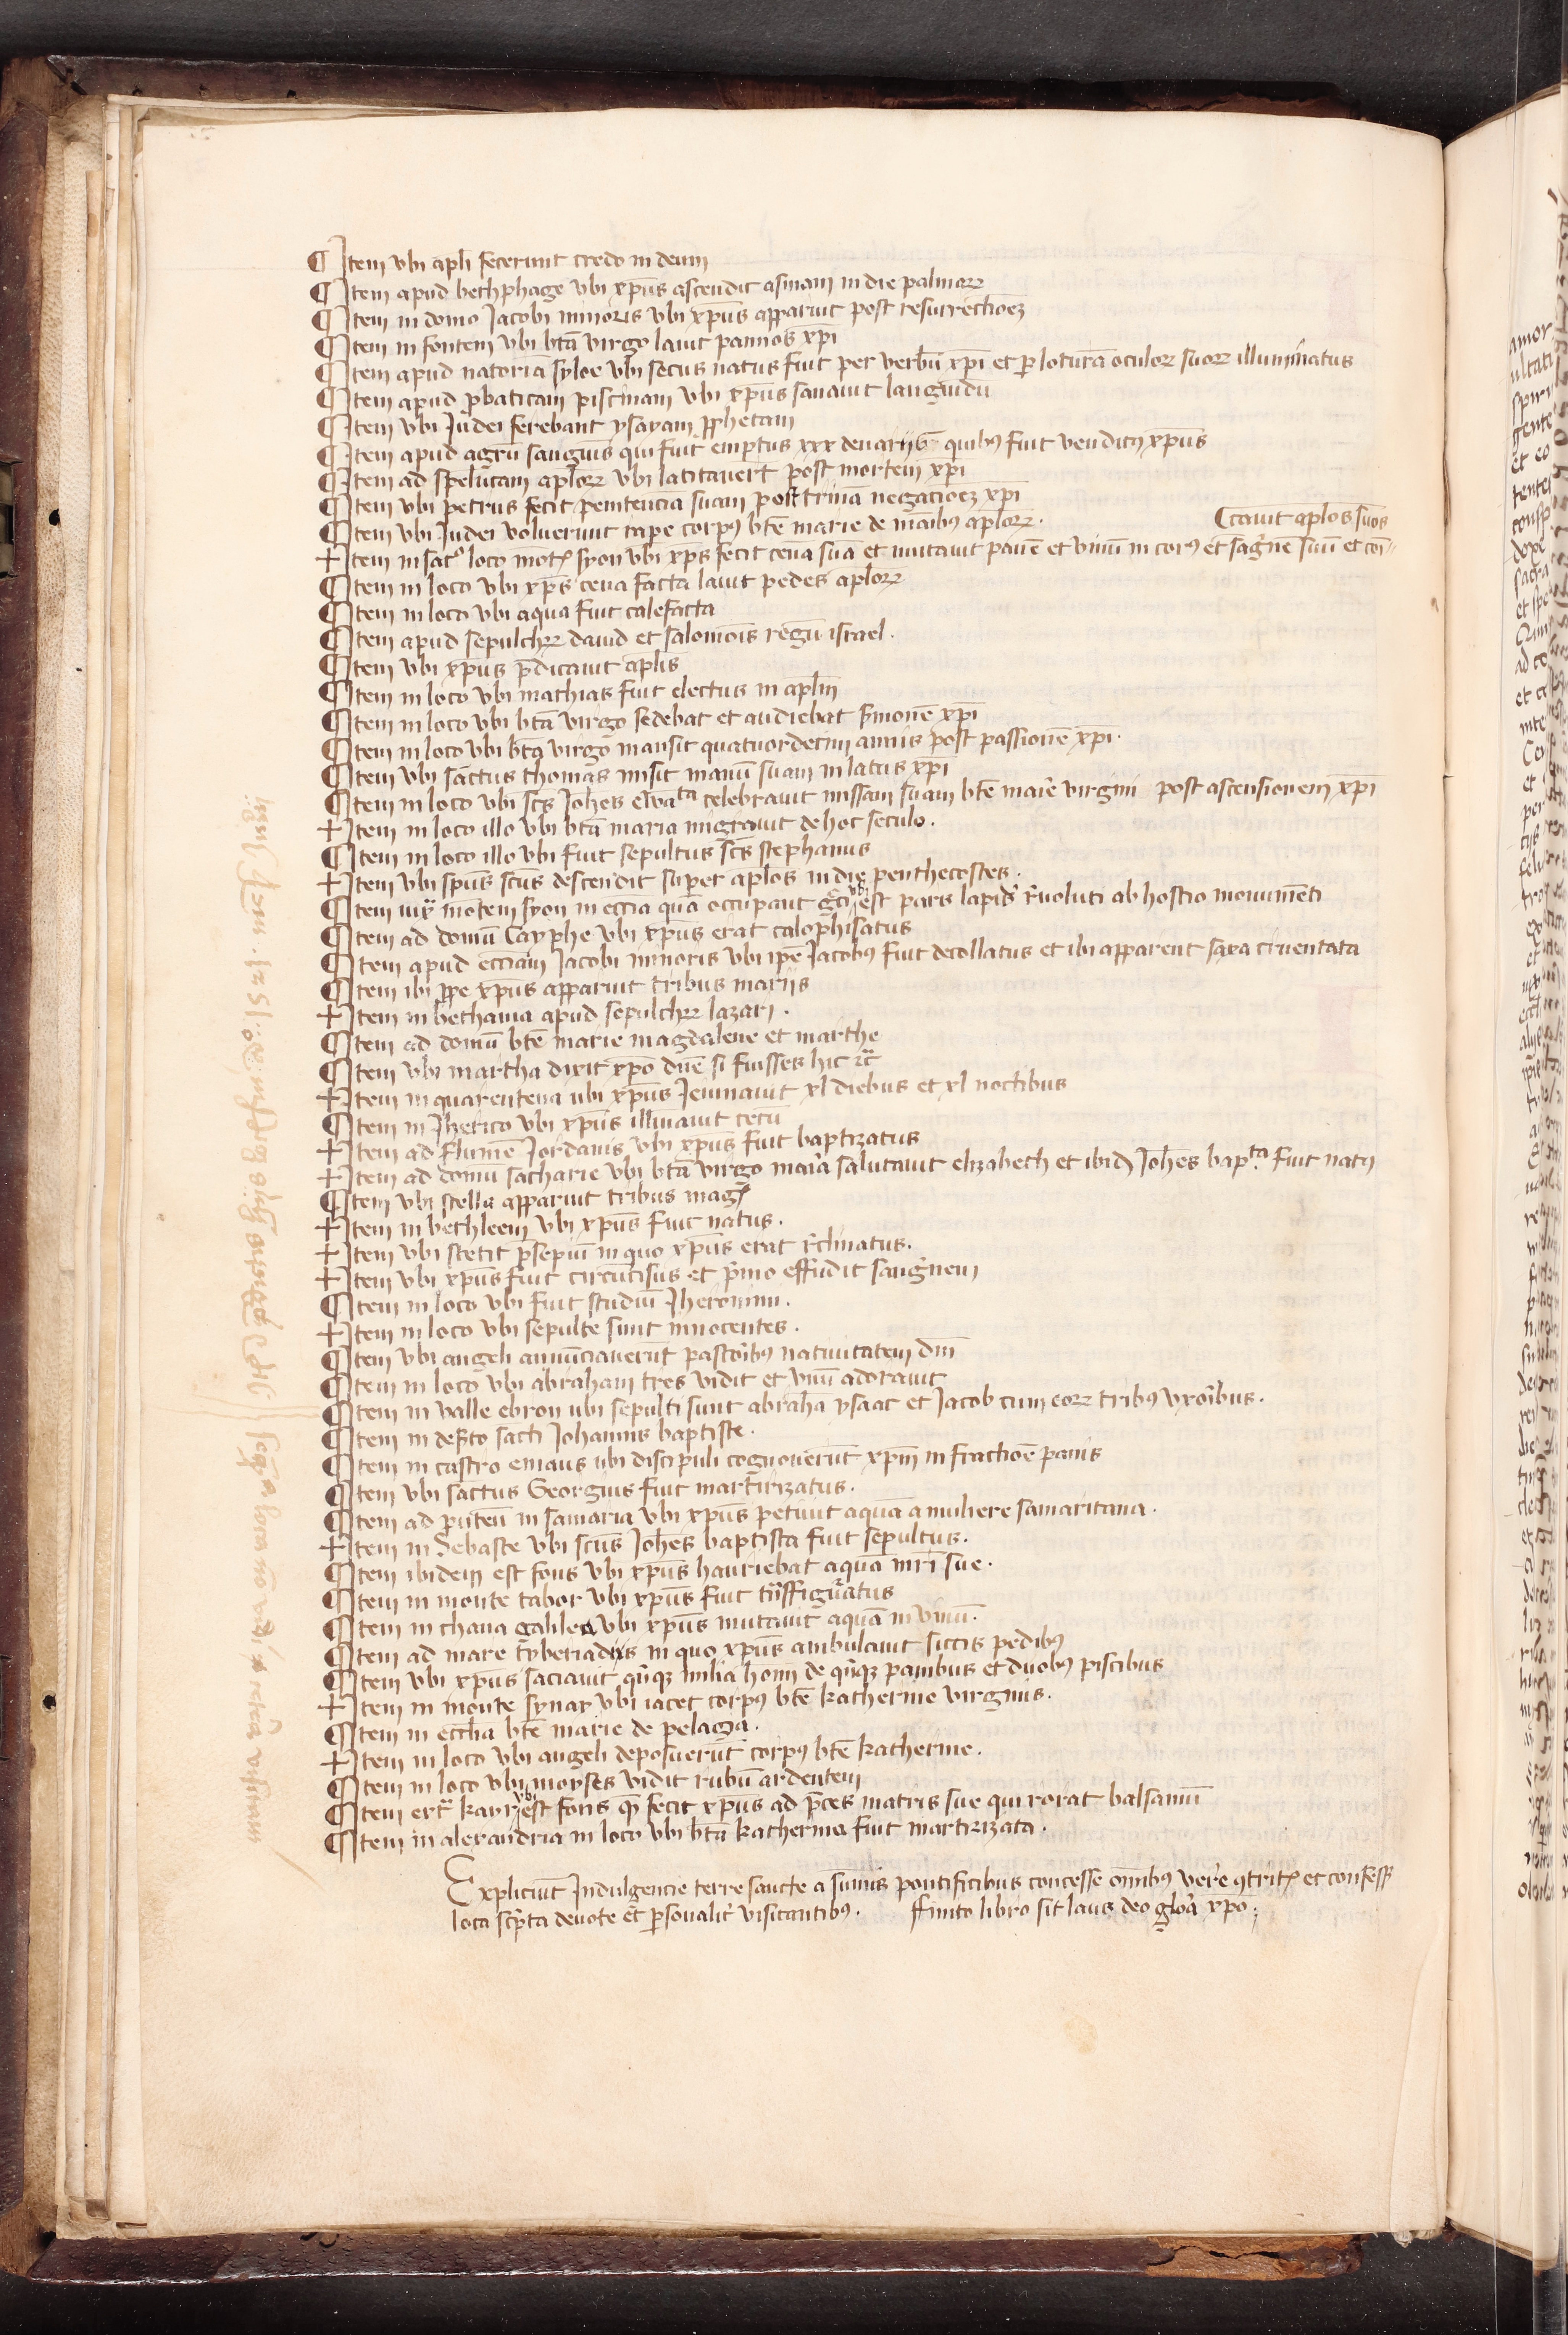 ¶ Item vbi apl̄i fecerunt credo in deum
¶ Item apud bethphage vbi xp̄us ascendit asinam in die palmaꝝ
¶ Item in domo Jacobi minoris vbi xp̄us apparuit post resurrectioēꝫ
¶ Item in fontem vbi btā virgo lauit pannos xp̄i
¶ Item apud natoriā syloe vbi secus natus fuit per verbū xp̄i et ꝑ loturā oculoꝝ suoꝝ illuminatus
¶ Item apud ꝓbaticam piscinam vbi xp̄us sanauit languidū
¶ Item vbi Judei serebant ysayam ꝓphetam
¶ Item apud agrū sanguis qui fuit emptus xxx denarijs quibꝰ fuit venditꝰ xp̄us
¶ Item ad speluncam apl̄oꝝ vbi latitauert̄ post mortem xp̄i
¶ Item vbi petrus fecit penitencia suam post trinā negatioēꝫ xp̄i
¶ Item vbi Judei voluerunt rape corpꝰ btē marie de māibꝰ apl̄oꝝ.
⁌cauit apl̄os suos
+ Item in sātᵒ loco mōtꝭ syon vbi xp̄s fecit cenā suā et mutauit panē et vinū in corꝰ et sāgnē suū et cōi-
¶ Item in loco vbi xp̄s cena facta lauit pedes apl̄oꝝ
¶ Item in loco vbi aqua fuit calefacta
¶ Item apud sepulchꝝ dauid et salomōis regū israel.
¶ Item vbi xp̄us p̄dicauit apl̄is
¶ Item in loco vbi mathias fuit electus in apl̄m
¶ Item in loco vbi btā virgo sedebat et audiebat s̄monē xp̄i
¶ Item in loco vbi btā virgo mansit quatuordecim annis post passionē xp̄i.
¶ Item vbi sanctus thomas misit manū suam in latus xp̄i
¶ Item in loco vbi scs̄ Joh̄es ewāᵗᵃ celebrauit missam suam btē marie virgini post ascensionem xp̄i
+ Item in loco illo vbi btā maria migrauit de hoc seculo.
¶ Item in loco illo vbi fuit sepultus scs̄ stephanus
+ Item vbi sp̄us scūs descendit super apl̄os in die penthecostes.
¶ Item iux̄ mōtem syon in ecc̄ia quā occupant vbi est pars lapidꝭ r̄uoluti ab hostio monumēti
¶ Item ad domū Cayphe vbi xp̄us erat calophisatus
¶ Item apud ecc̄iam Jacobi minoris vbi ip̄e Jacobꝰ fuit decollatus et ibi apparent saxa cruentata
¶ Item ibi ꝓpe xp̄us apparuit tribus mariis
+ Item in bethania apud sepulchꝝ lazari.
¶ Item ad domū btē marie magdalene et marthe
¶ Item vbi martha dixit xp̄o dn̄e si fuisses hic ⁊c̄
+ Item in quarentena ubi xp̄us Jeiunauit xl diebus et xl noctibus
¶ Item in Jherico vbi xp̄us illuīauit cecū
+ Item ad flumē Jordanis vbi xp̄us fuit baptizatus
+ Item ad domū sacharie vbi btā virgo maria salutauit elizabeth et ibidꝫ Joh̄es bapᵗᵃ fuit natꝰ
¶ Item vbi stella apparuit tribus magꝭ
+ Item in bethleem vbi xp̄us fuit natus.
+ Item vbi stetit p̄sepiū in quo xp̄us erat r̄clinatus.
+ Item vbi xp̄us fuit circūcisus et p̄mo effudit sanguinem
¶ Item in loco vbi fuit studiū Jheronimi.
+ Item in loco vbi sepulte sunt innocentes.
¶ Item vbi angeli annūciauerūt pastoribꝰ natiuitatem dn̄i
¶ Item in loco vbi abraham tres vidit et vnū adorauit
¶ Item in valle ebron ubi sepulti sunt abrahā ysaac et Jacob cum eoꝝ tribꝰ vxoribus.
¶ Item in des̄to sācti Johannis baptiste.
¶ Item in castro emaus ubi discipuli cognouerūt xp̄m in fractioē panis
¶ Item vbi sāctus Georgius fuit martirizatus.
¶ Item ad puteū in samaria vbi xp̄us petiuit aquā a muliere samaritana.
+ Item in Sebaste vbi scūs Joh̄es baptista fuit sepultus.
¶ Item ibidem est fons vbi xp̄us hauriebat aquā mr̄i sue.
¶ Item in monte tabor vbi xp̄us fuit trāsfiguratus
¶ Item in chana galilea vbi xp̄us mutauit aquā in vinū.
¶ Item ad mare tyberiadis in quo xp̄us ambulauit siccis pedibꝰ
¶ Item vbi xp̄us saciauit qūqꝫ milia hoīm de qūqꝫ panibus et duobꝰ piscibus
+ Item in monte synay vbi iacet corpꝰ btē katherine virginis.
¶ Item in ecclīa btē marie de pelaga.
+ Item in loco vbi angeli deposuerūt corpꝰ btē katherine.
¶ Item in loco vbi moyses vidit rubū ardentem
¶ Item extᵃ kayr vbi est fons quē fecit xp̄us ad p̄ces matris sue qui rorat balsamū
¶ Item in alexandria in loco vbi btā katherina fuit martirizata.
Expliciūt Indulgencie terre sancte a sūmis pontificibus concesse om̄ibꝰ vere ꝯtritꝭ et confessꝭ
loca scp̄ta deuote et ꝑsonalit̄ visitantibꝰ. ffinito libro sit laus deo gloria xp̄o.